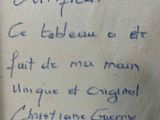 Ce tableau a été
fait de ma main
Unique et Original
Christiane